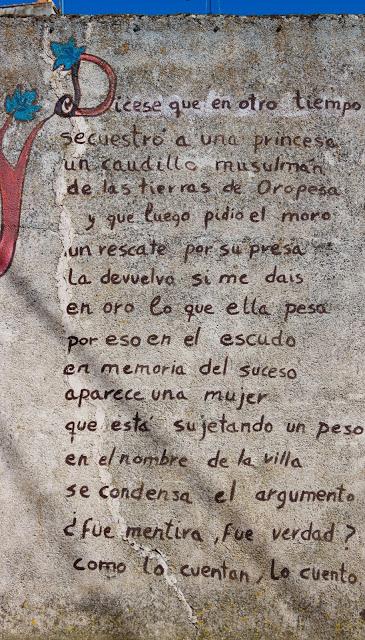 Dícese que en otro tiempo
secuestró a una princesa
un caudillo musulmán
de las tierras de Oropesa
y que luego pidio el moro
un rescate por su presa
La devuelvo si me dais
en oro lo que ella pesa
por eso en el escudo
en memoria del suceso
aparece una mujer
que está sujetando un peso
en el nombre de la villa
se condensa el argumento
¿fue mentira, fue verdad?
como lo cuentan, Lo cuento.